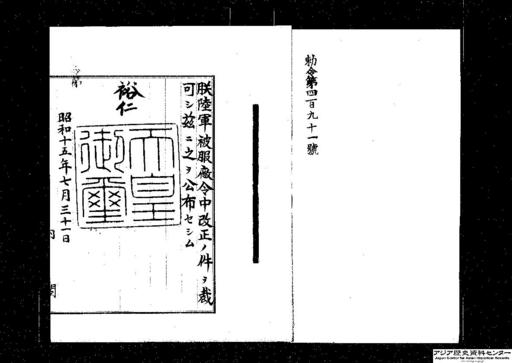 勅令第四百九十一號
朕陸軍被服廠令中改正ノ件ヲ裁
可シ玆ニ之ヲ公布セシム
裕仁
天皇
御璽
昭和十五年七月三十一日
内閣
アジア歴史資料センター
Japan Center for Asian Historical Records